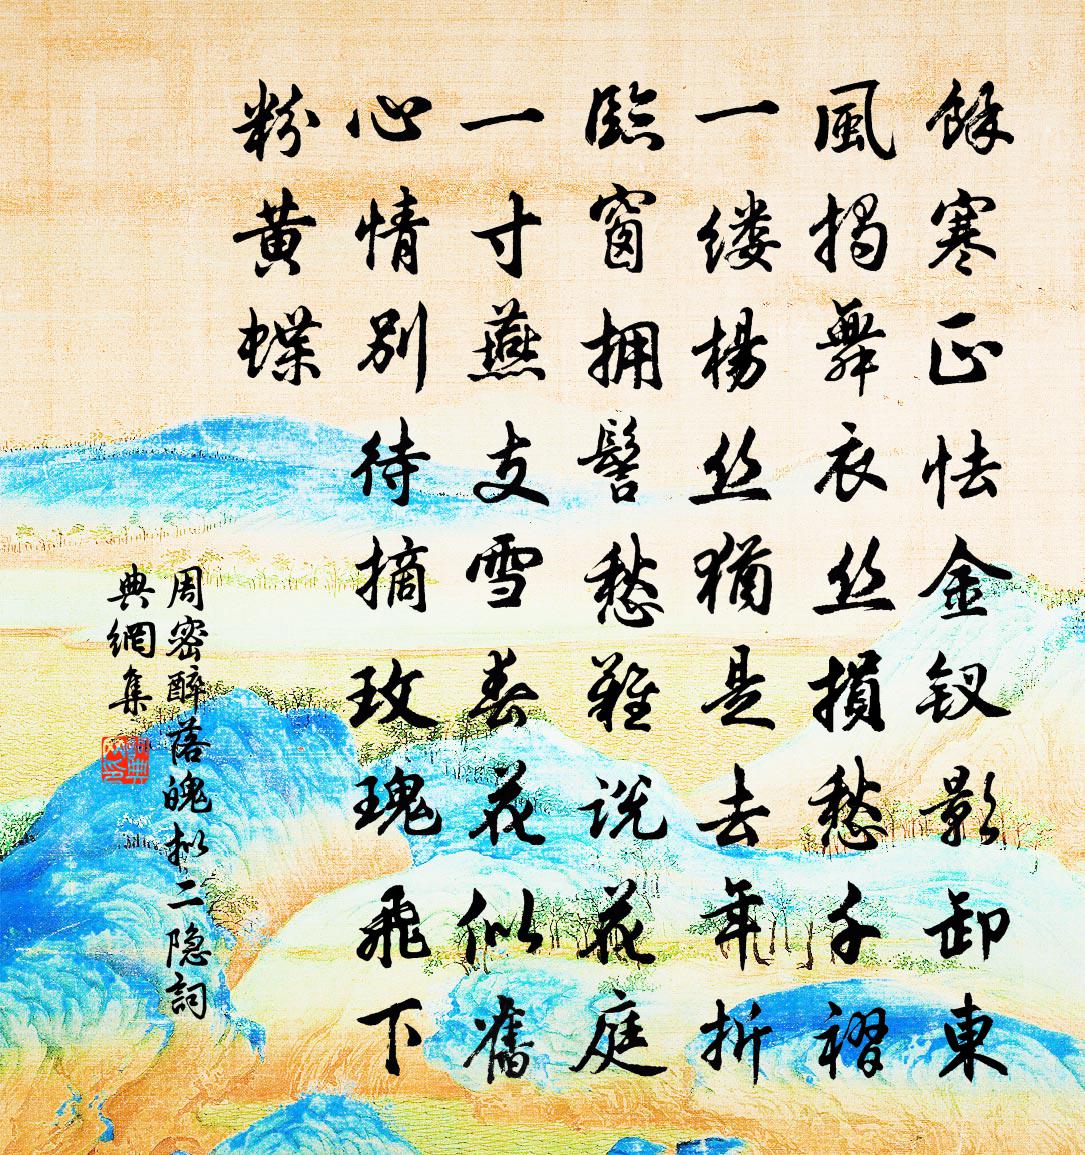 餘寒正怯金钗影卸東
風揭舞衣丝損愁千褶
一缕楊丝猶是去年折
臨窗拥髻愁難説花庭
一寸燕支雪春花似舊
心情别待摘玫瑰飛下
粉黄蝶
周密醉落魄拟二隐詞
典網集